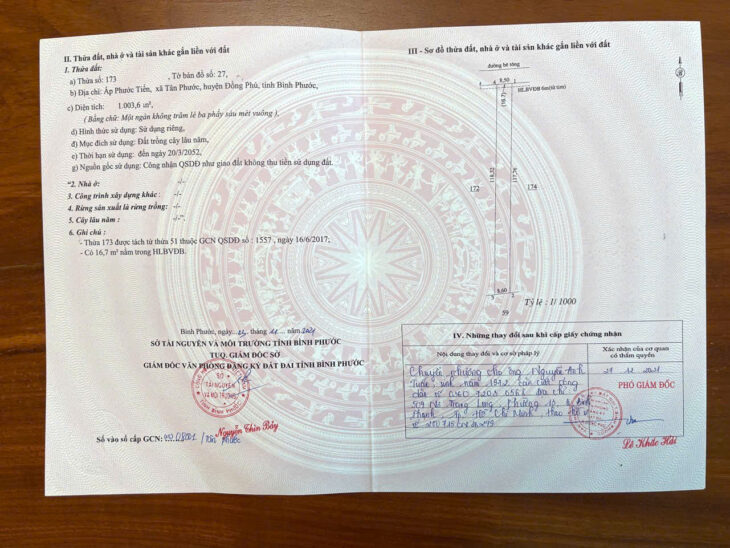 II. Thửa đất, nhà ở và tài sản khác gắn liền với đất
1. Thửa đất:
a) Thửa số: 173 , Tờ bản đồ số: 27,
b) Địa chỉ: Ấp Phước Tiến, xã Tân Phước, huyện Đồng Phú, tỉnh Bình Phước,
c) Diện tích: 1.003,6 m²,
( Bằng chữ: Một ngàn không trăm lẻ ba phẩy sáu mét vuông ),
d) Hình thức sử dụng: Sử dụng riêng,
đ) Mục đích sử dụng: Đất trồng cây lâu năm,
e) Thời hạn sử dụng: đến ngày 20/3/2052,
g) Nguồn gốc sử dụng: Công nhận QSDĐ như giao đất không thu tiền sử dụng đất.
"2. Nhà ở: -/-
3. Công trình xây dựng khác : -/-
4. Rừng sản xuất là rừng trồng: -/-
5. Cây lâu năm : -/-".
6. Ghi chú :
- Thửa 173 được tách từ thửa 51 thuộc GCN QSDĐ số : 1557 , ngày 16/6/2017;
- Có 16,7 m² nằm trong HLBVĐB.
Bình Phước, ngày tháng 11 năm 2021
SỞ TÀI NGUYÊN VÀ MÔI TRƯỜNG TỈNH BÌNH PHƯỚC
TUQ. GIÁM ĐỐC SỞ
GIÁM ĐỐC VĂN PHÒNG ĐĂNG KÝ ĐẤT ĐAI TỈNH BÌNH PHƯỚC
SỞ
TÀI NGUYÊN
VÀ MÔI TRƯỜNG
TỈNH BÌNH PHƯỚC
Nguyễn Thìn Bảy
Số vào sổ cấp GCN: /Tân Phước
III - Sơ đồ thửa đất, nhà ở và tài sản khác gắn liền với đất
đường bê tông
8.50
(16.7)
HLBVĐB 6m(từ tim)
172
174
8.60
59
Tỷ lệ : 1/ 1000
IV. Những thay đổi sau khi cấp giấy chứng nhận
Nội dung thay đổi và cơ sở pháp lý
Xác nhận của cơ quan
có thẩm quyền
Chuyển nhượng cho ông Nguyễn Anh
sinh năm căn cước công
dân số địa chỉ
Nơ Trang Long, Phường
Thạnh, Tp Hồ Chí Minh theo hồ
12 2021
PHÓ GIÁM ĐỐC
Lê Khắc Hải